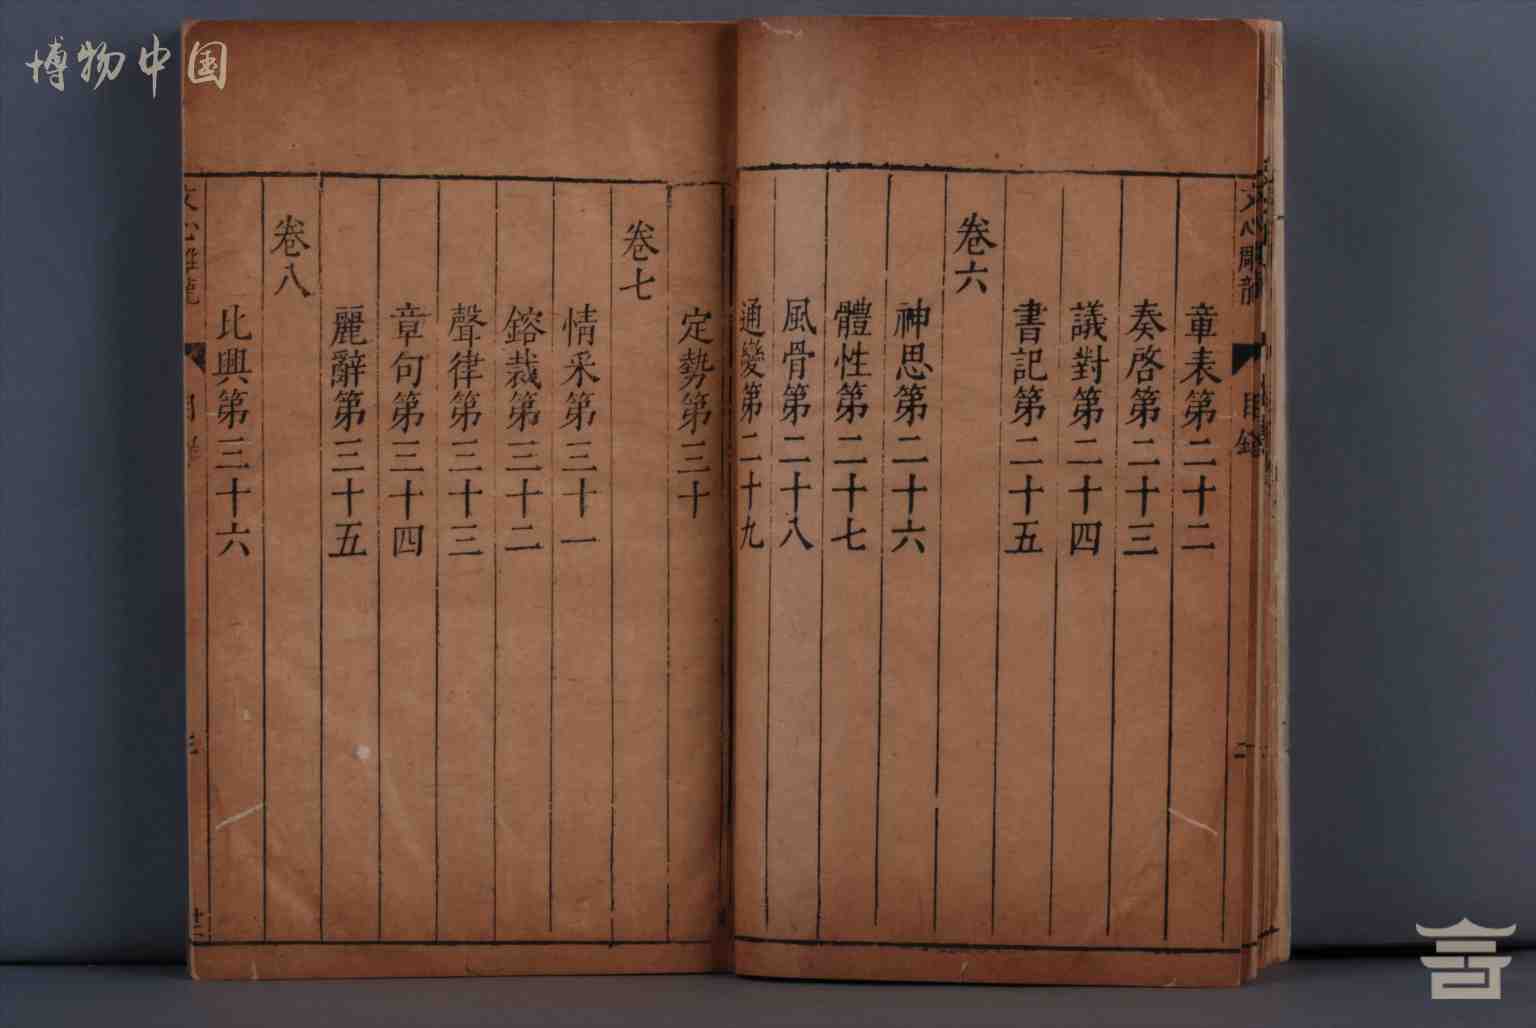 博物中国
文心雕龍
目錄
章表第二十二
奏啓第二十三
議對第二十四
書記第二十五
卷六
神思第二十六
體性第二十七
風骨第二十八
通變第二十九
定勢第三十
卷七
情采第三十一
鎔裁第三十二
聲律第三十三
章句第三十四
麗辭第三十五
卷八
比興第三十六